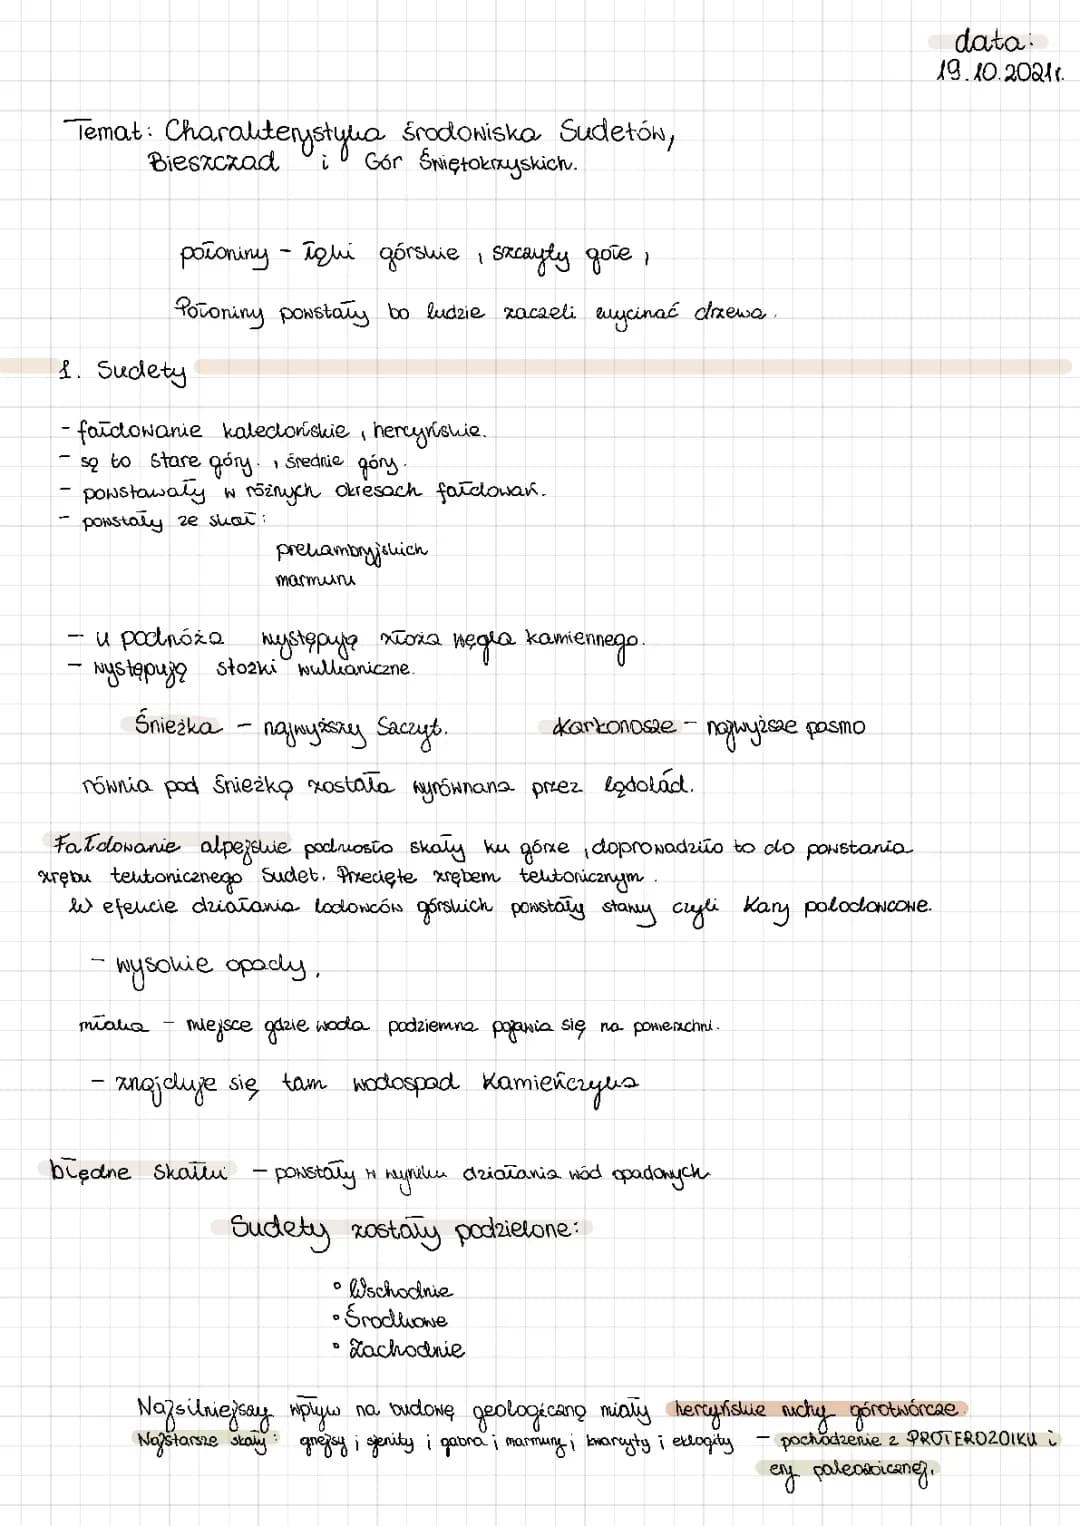 data:
19.10.2021r.
Temat: Charakterystyka środowiska Sudetów,
Bieszczad i Gór Świętokrzyskich.
połoniny - łąki górskie , szczyty gołe ,
Połoniny powstały bo ludzie zaczeli wycinać drzewa.
1. Sudety
- fałdowanie kaledońskie , hercyńskie.
- są to stare góry. , średnie góry.
- powstawały w różnych okresach fałdowań.
- powstały ze skał :
prekambryjskich
marmuru
- u podnóża występują złoża węgla kamiennego.
- występują stożki wulkaniczne.
Śnieżka - najwyższy Szczyt. Karkonosze - najwyższe pasmo
równia pod śnieżką została wyrównana przez lądolád.
Fałdowanie alpejskie podniosło skały ku górze , doprowadziło to do powstania
zrębu tektonicznego Sudet. Przecięte zrębem tektonicznym .
W efekcie działania lodowców górskich powstały stawy czyli Kary polodowcowe.
- wysokie opady,
młaka - miejsce gdzie woda podziemna pojawia się na powierzchni.
- znajduje się tam wodospad Kamieńczyka
błędne Skałki - powstały w wyniku działania wód opadowych
Sudety zostały podzielone:
° Wschodnie
° Środkowe
° Zachodnie
Najsilniejszy wpływ na budowę geologiczną miały hercyńskie ruchy górotwórcze.
Najstarsze skały : gnejsy ; sjenity ; gabra ; marmury ; kwarcyty ; eklogity - pochodzenie z PROTEROZOIKU i
ery paleozoicznej.